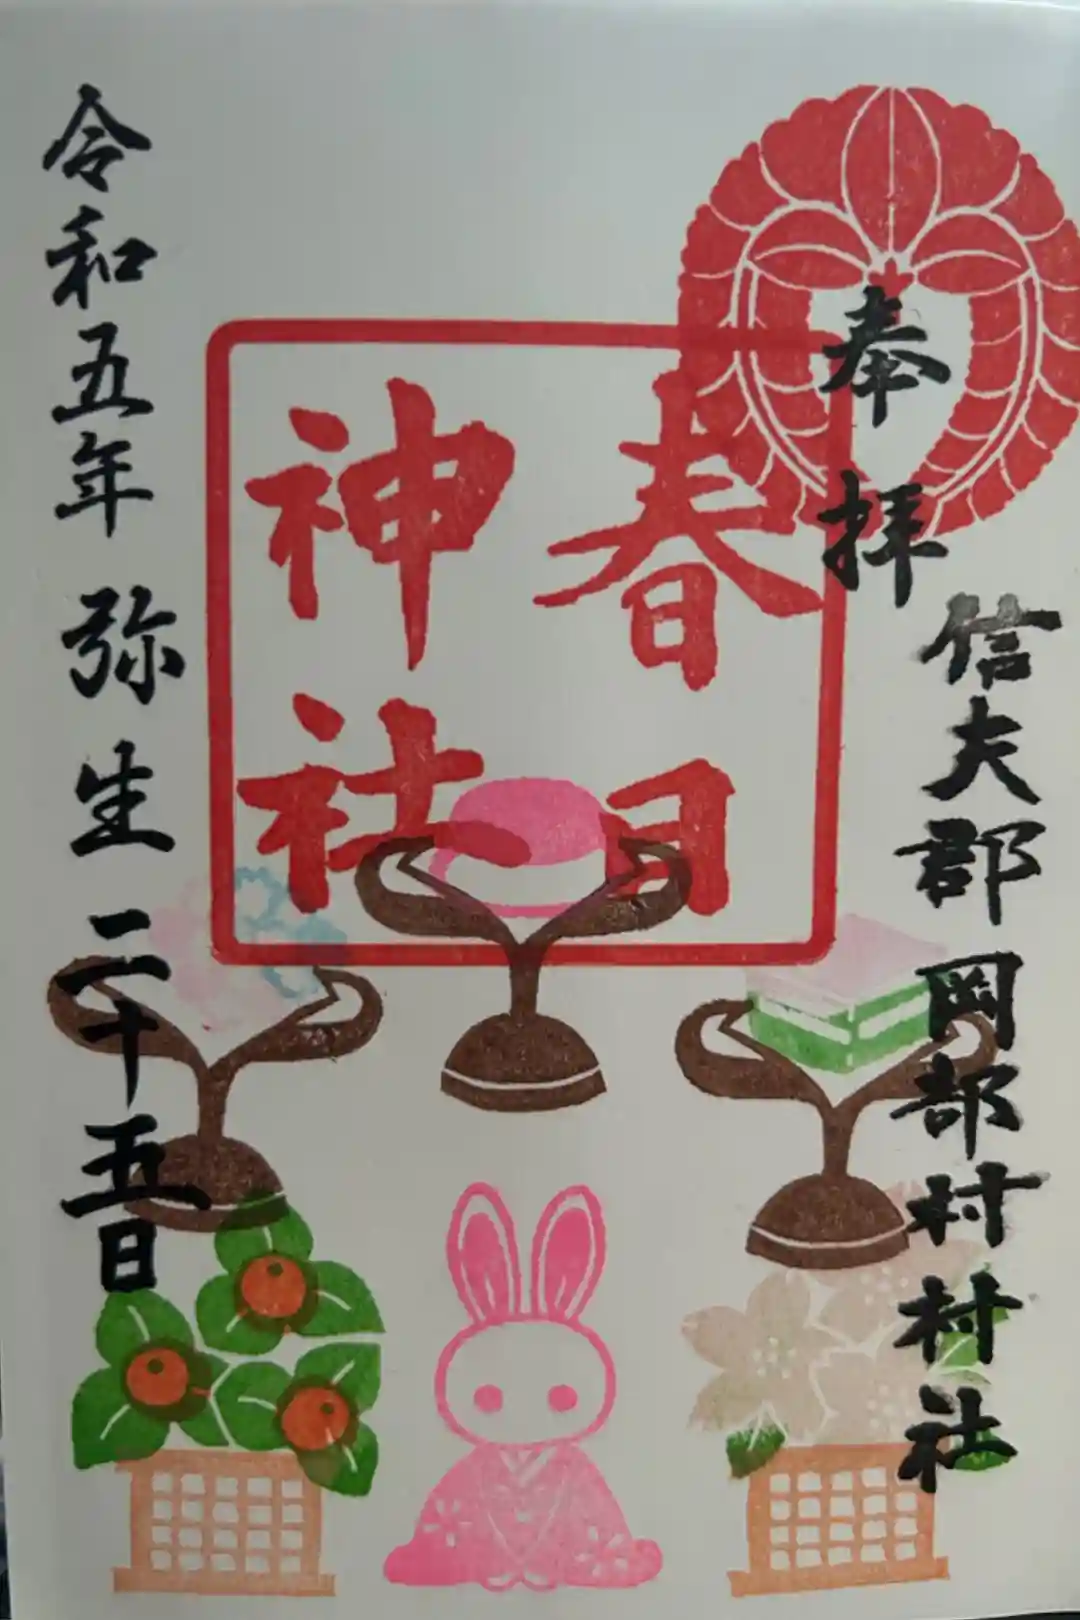 奉拝
信夫郡岡部村村社
春日
神社
令和五年 弥生 二十五日